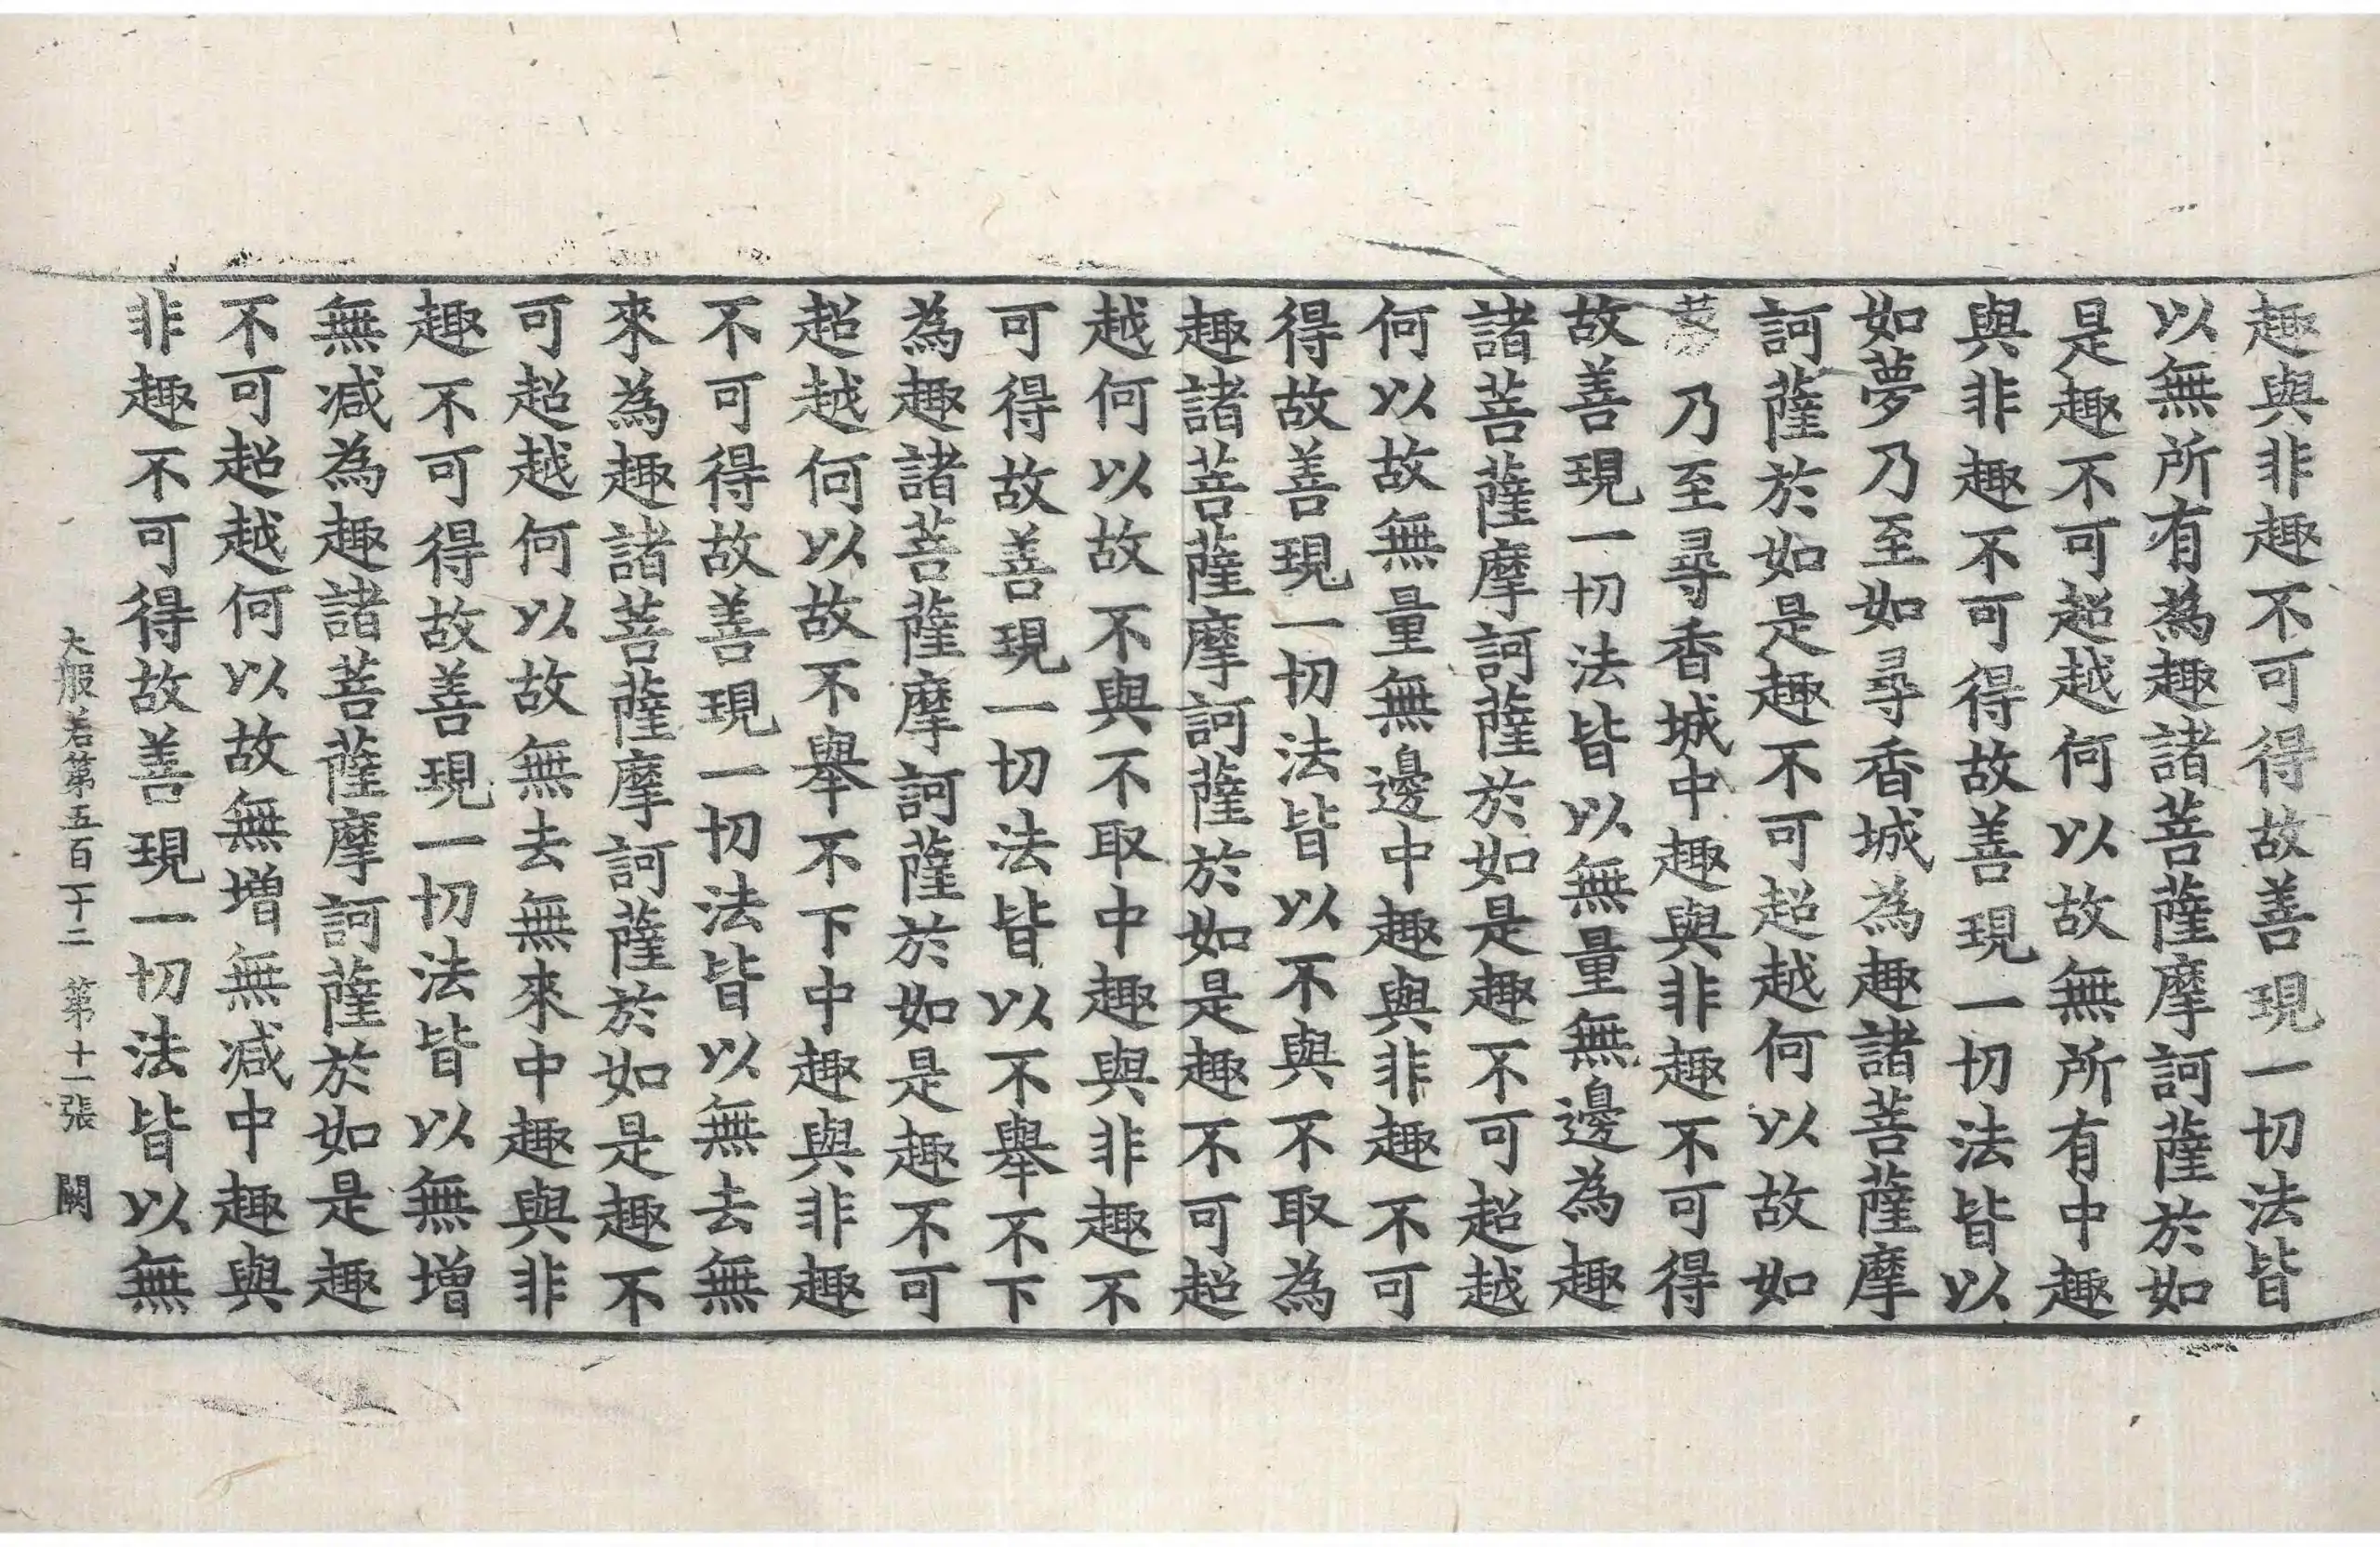 趣與非趣不可得故善現一切法皆
以無所有為趣諸菩薩摩訶薩於如
是趣不可超越何以故無所有中趣
與非趣不可得故善現一切法皆以
如夢乃至如尋香城為趣諸菩薩摩
訶薩於如是趣不可超越何以故如
乃至尋香城中趣與非趣不可得
故善現一切法皆以無量無邊為趣
諸菩薩摩訶薩於如是趣不可超越
何以故無量無邊中趣與非趣不可
得故善現一切法皆以不與不取為
趣諸菩薩摩訶薩於如是趣不可超
越何以故不與不取中趣與非趣不
可得故善現一切法皆以不舉不下
為趣諸菩薩摩訶薩於如是趣不可
超越何以故不舉不下中趣與非趣
不可得故善現一切法皆以無去無
來為趣諸菩薩摩訶薩於如是趣不
可超越何以故無去無來中趣與非
趣不可得故善現一切法皆以無增
無減為趣諸菩薩摩訶薩於如是趣
不可超越何以故無增無減中趣與
非趣不可得故善現一切法皆以無
大般若第五百十二 第十一張 闕